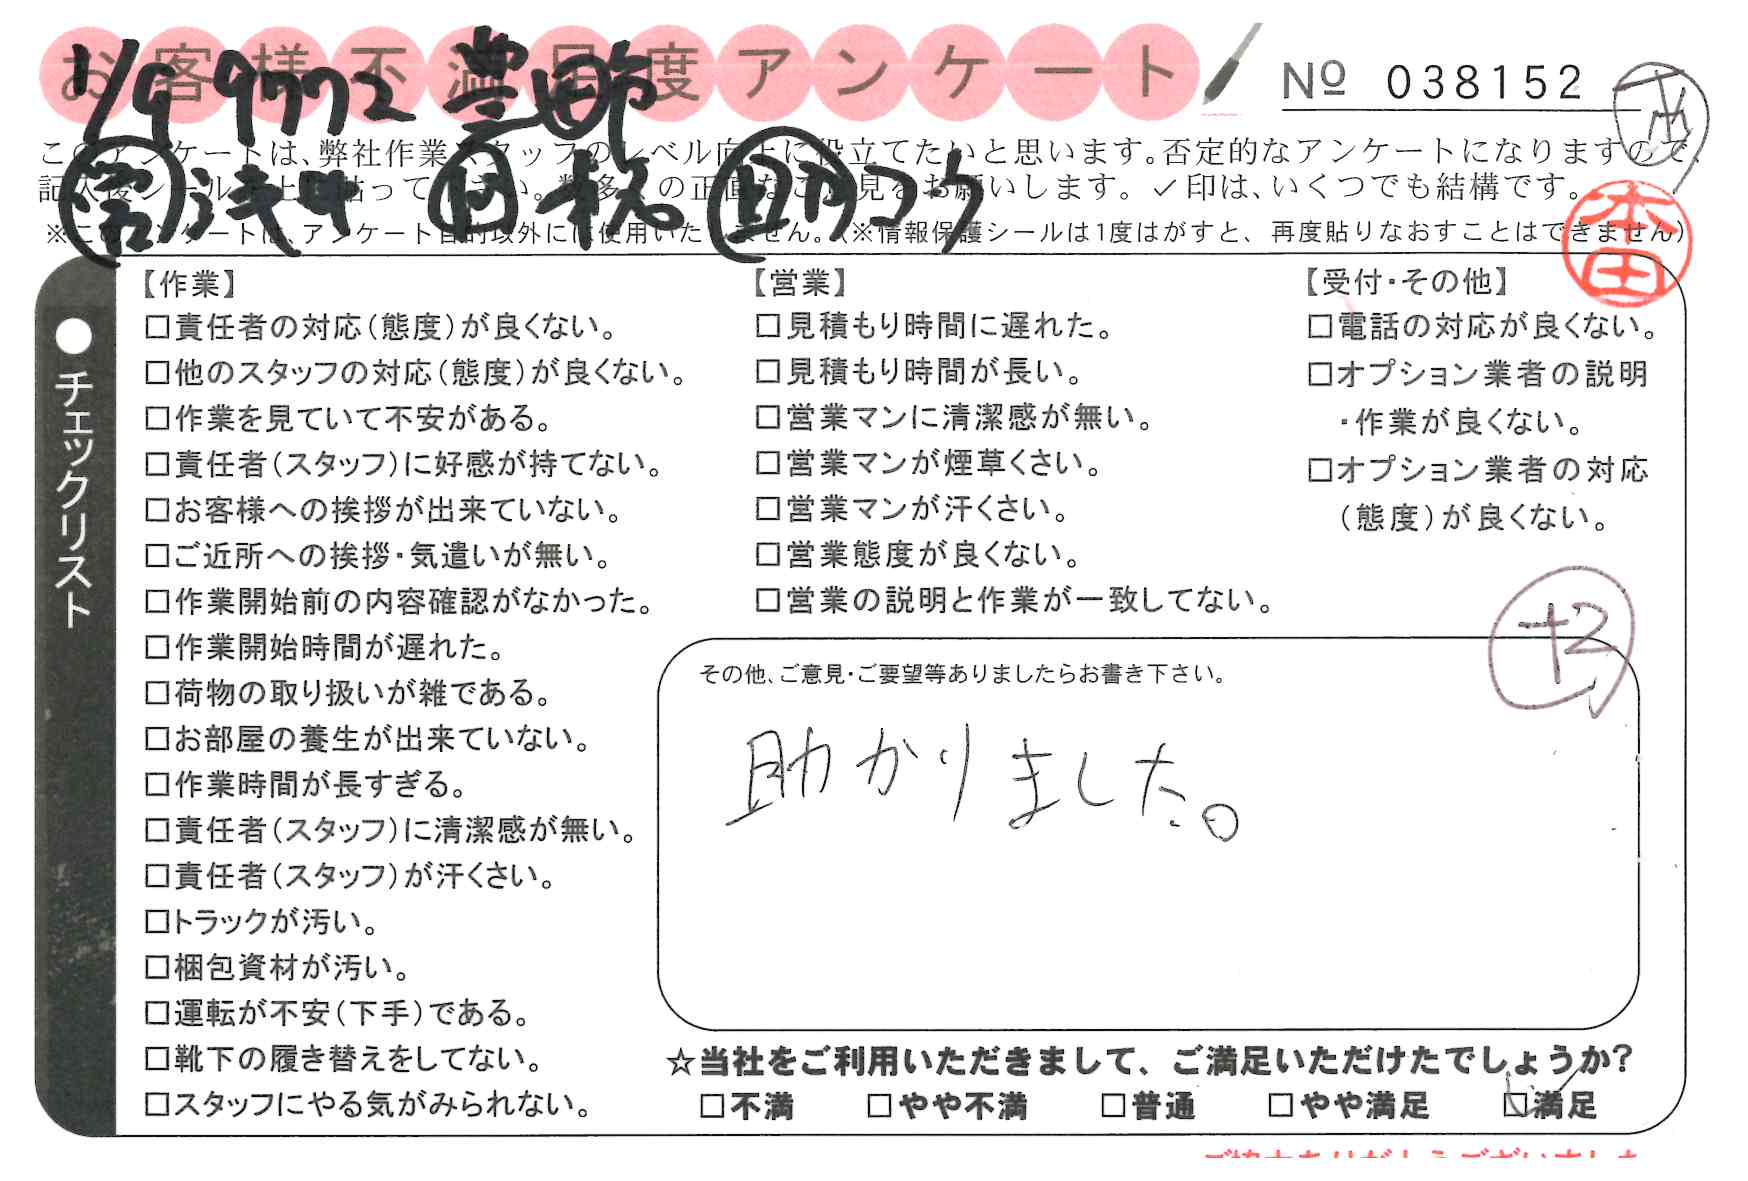 お客様不満足度アンケート
№ 038152
1/9 9772
このアンケートは、弊社作業スタッフのレベル向上に役立てたいと思います。否定的なアンケートになりますので、
記入後シールを上に貼って下さい。数多くの正直なご意見をお願いします。✓印は、いくつでも結構です。
※このアンケートは、アンケート目的以外には使用いたしません。(※情報保護シールは1度はがすと、再度貼りなおすことはできません)
本田
●チェックリスト
【作業】
□責任者の対応(態度)が良くない。
□他のスタッフの対応(態度)が良くない。
□作業を見ていて不安がある。
□責任者(スタッフ)に好感が持てない。
□お客様への挨拶が出来ていない。
□ご近所への挨拶・気遣いが無い。
□作業開始前の内容確認がなかった。
□作業開始時間が遅れた。
□荷物の取り扱いが雑である。
□お部屋の養生が出来ていない。
□作業時間が長すぎる。
□責任者(スタッフ)に清潔感が無い。
□責任者(スタッフ)が汗くさい。
□トラックが汚い。
□梱包資材が汚い。
□運転が不安(下手)である。
□靴下の履き替えをしてない。
□スタッフにやる気がみられない。
【営業】
□見積もり時間に遅れた。
□見積もり時間が長い。
□営業マンに清潔感が無い。
□営業マンが煙草くさい。
□営業マンが汗くさい。
□営業態度が良くない。
□営業の説明と作業が一致してない。
【受付・その他】
□電話の対応が良くない。
□オプション業者の説明
・作業が良くない。
□オプション業者の対応
(態度)が良くない。
+2
その他、ご意見・ご要望等ありましたらお書き下さい。
助かりました。
☆当社をご利用いただきまして、ご満足いただけたでしょうか?
□不満 □やや不満 □普通 □やや満足 ☑満足
ご協力ありがとうございました